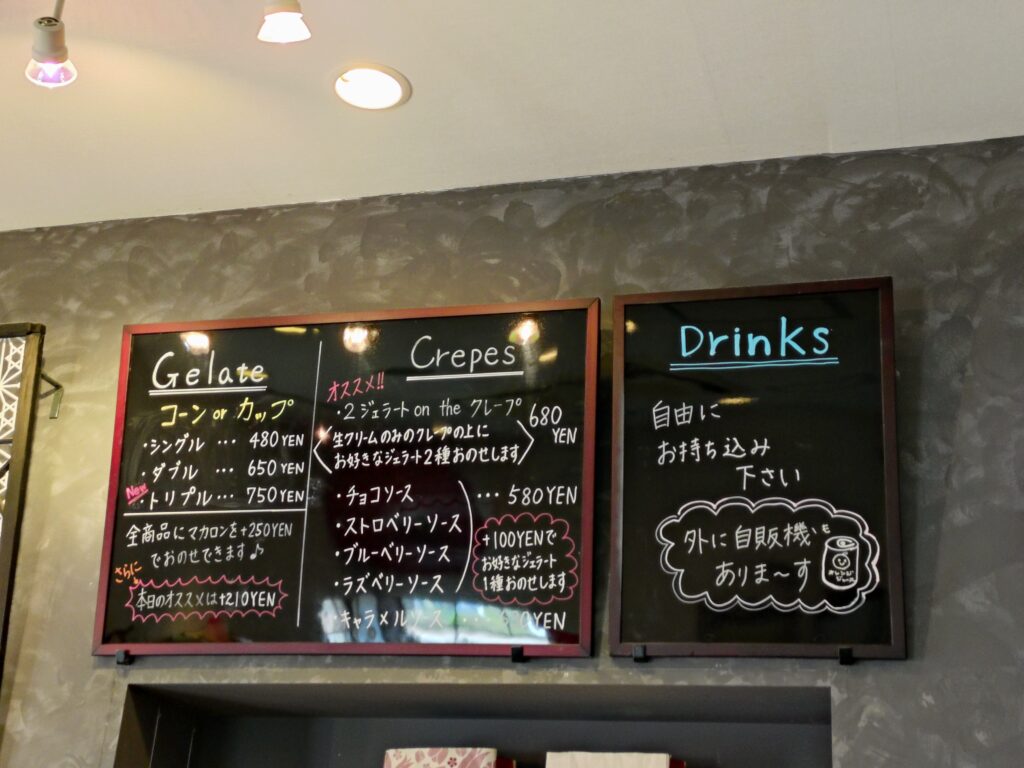 Gelate
コーン or カップ
・シングル … 480 YEN
・ダブル … 650 YEN
New
・トリプル … 750 YEN
全商品にマカロンを+250YEN
でおのせできます♪
さらに
本日のオススメは+210YEN
Crepes
オススメ!!
・2ジェラート on the クレープ 680 YEN
生クリームのみのクレープの上に
お好きなジェラート2種おのせします
・チョコソース … 580YEN
・ストロベリーソース
・ブルーベリーソース
・ラズベリーソース
+100YENで
お好きなジェラート
1種おのせします
・キャラメルソース … YEN
Drinks
自由に
お持ち込み
下さい
外に自販機も
ありま～す